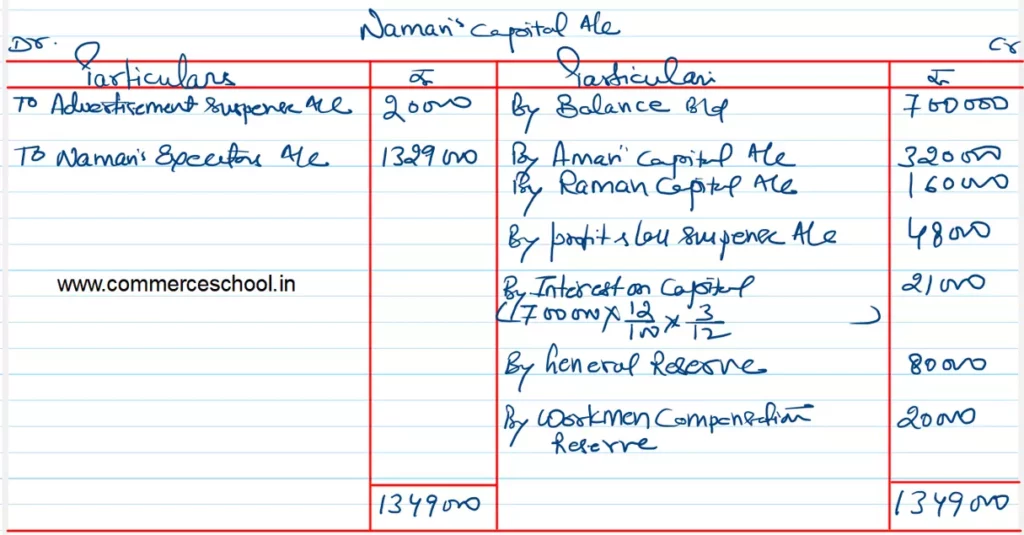 Naman's Capital A/c
Dr. Cr
Particulars ₹ Particulars ₹
To Advertisement Suspense A/c 20000 By Balance B/d 700000
To Naman's Executors A/c 1329000 By Aman's Capital A/c 320000
By Raman Capital A/c 160000
By profit & loss suspense A/c 48000
www.commerceschool.in By Interest on Capital 21000
(700000 × 12/100 × 3/12 )
By General Reserve 80000
By Workmen Compensation 20000
Reserve
1349000 1349000